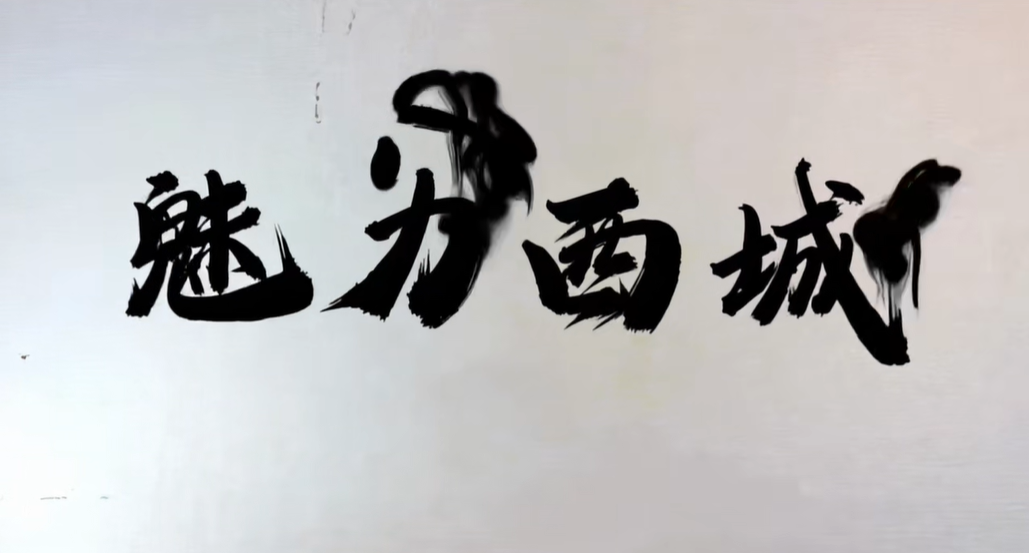 魅力西城